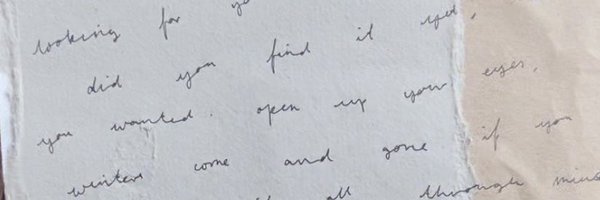 looking for
did you find it yet,
you wanted. open up your eyes,
winters come and gone if you
all through